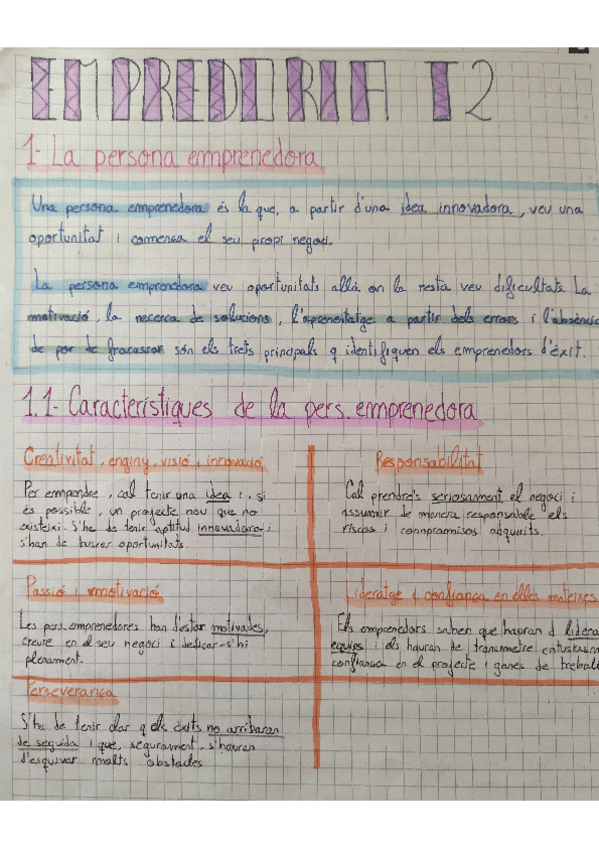 EMPREDORIA T2
1- La persona emprenedora
Una persona emprenedora és la que, a partir d'una idea innovadora, veu una
oportunitat i comença el seu propi negoci.
La persona emprenedora veu oportunitats allà on la resta veu dificultats. La
motivació, la recerca de solucions, l'aprenentatge a partir dels errors i l'absència
de por de fracassar són els trets principals q identifiquen els emprenedors d'èxit.
1.1- Característiques de la pers. emprenedora
Creativitat, enginy, visió i innovació
Per empendre, cal tenir una idea i, si
és possible, un projecte nou que no
existeixi. S'ha de tenir aptitud innovadora i
s'han de buscar oportunitats.
Responsabilitat
Cal prendre's seriosament el negoci i
assumir de manera responsable els
riscos i compromisos adquirits.
Passió i motivació
Les pers. emprenedores han d'estar motivades,
creure en el seu negoci i dedicar-s'hi
plenament.
Lideratge i confiança en elles mateixes
Els emprenedors saben que hauran d liderar
equips i els hauran de transmetre entusiasm
confiança en el projecte i ganes de treball
Perseverança
S'ha de tenir clar q els èxits no arribaran
de seguida i que, segurament, s'hauran
d'esquivar molts obstacles